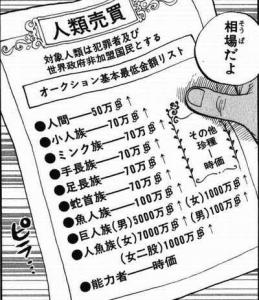 相場だよ
そうば
人類売買
対象人類は犯罪者及び
世界政府非加盟国民とする
オークション基本最低金額リスト
●人間――50万฿↑
●小人族――70万฿↑
●ミンク族――70万฿↑
●手長族――70万฿↑
●足長族――70万฿↑
●蛇首族――70万฿↑
●魚人族――100万฿↑
●巨人族(男)5000万฿↑(女)1000万฿↑
●人魚族(女)7000万฿↑(男)100万฿↑
(女二股)1000万฿↑
●能力者――時価
その他
珍種
―
時価
ピラ…